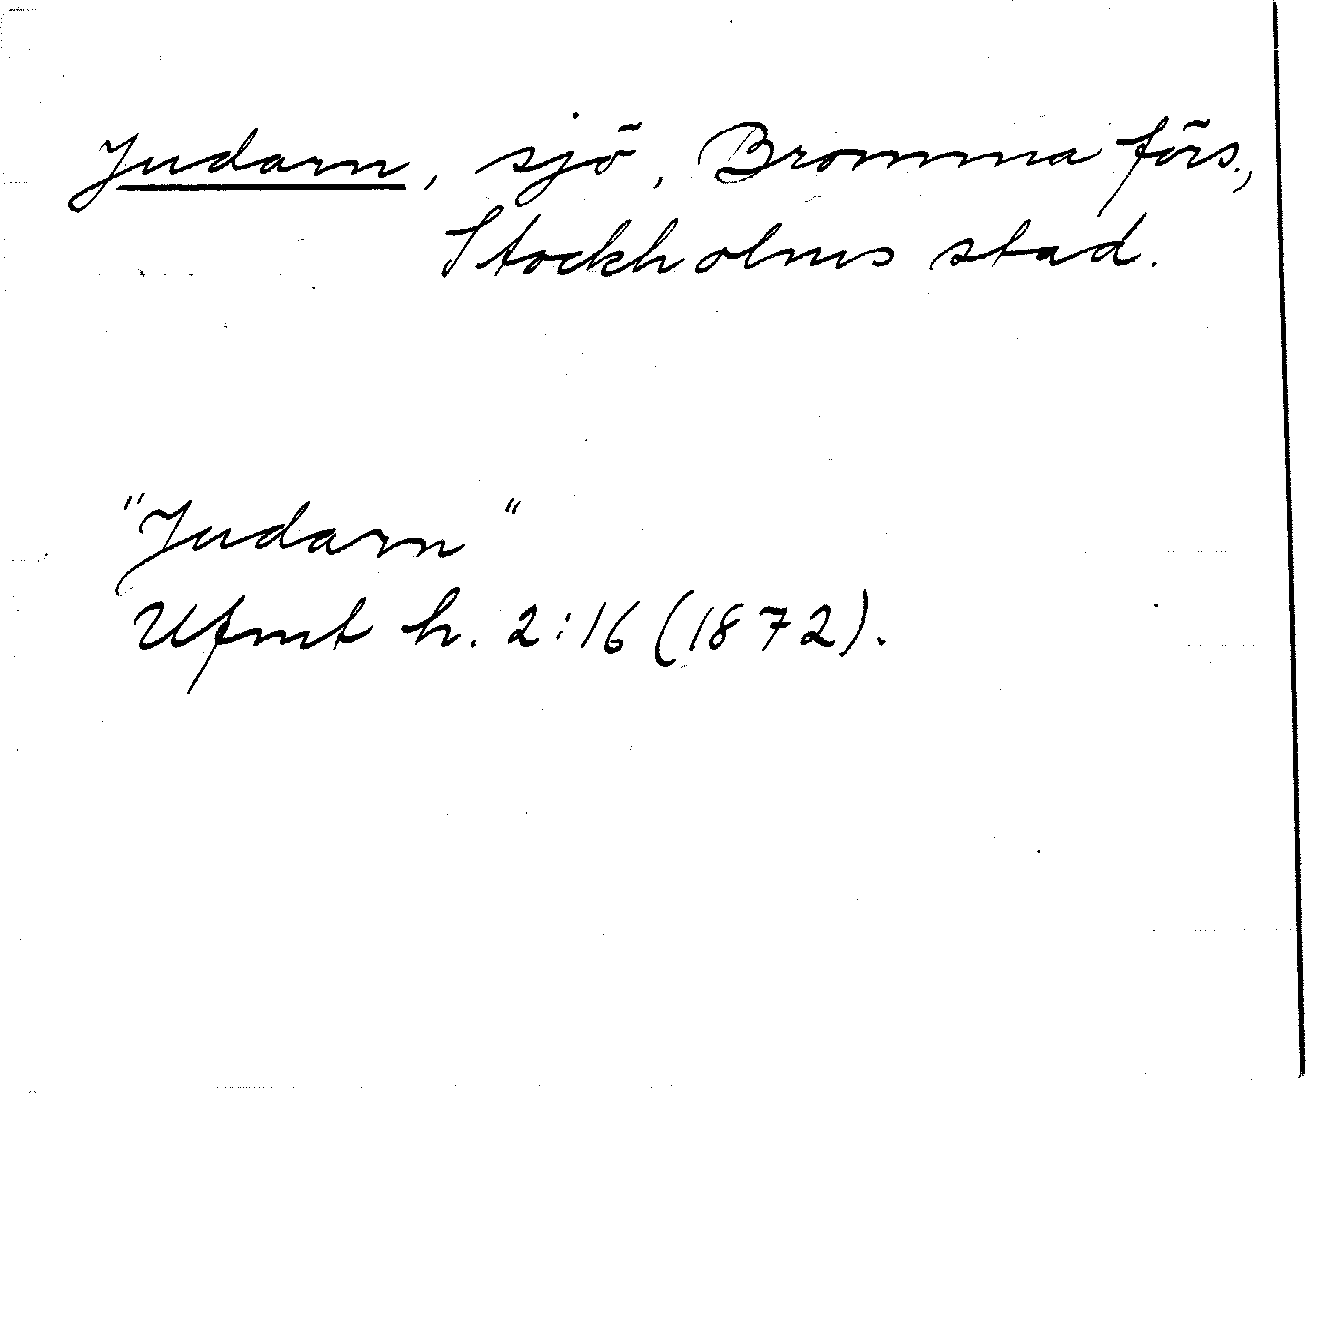 Judarn, sjö, Bromma förs.,
Stockholms stad.
"Judarn"
Ufmt h. 2:16 (1872).